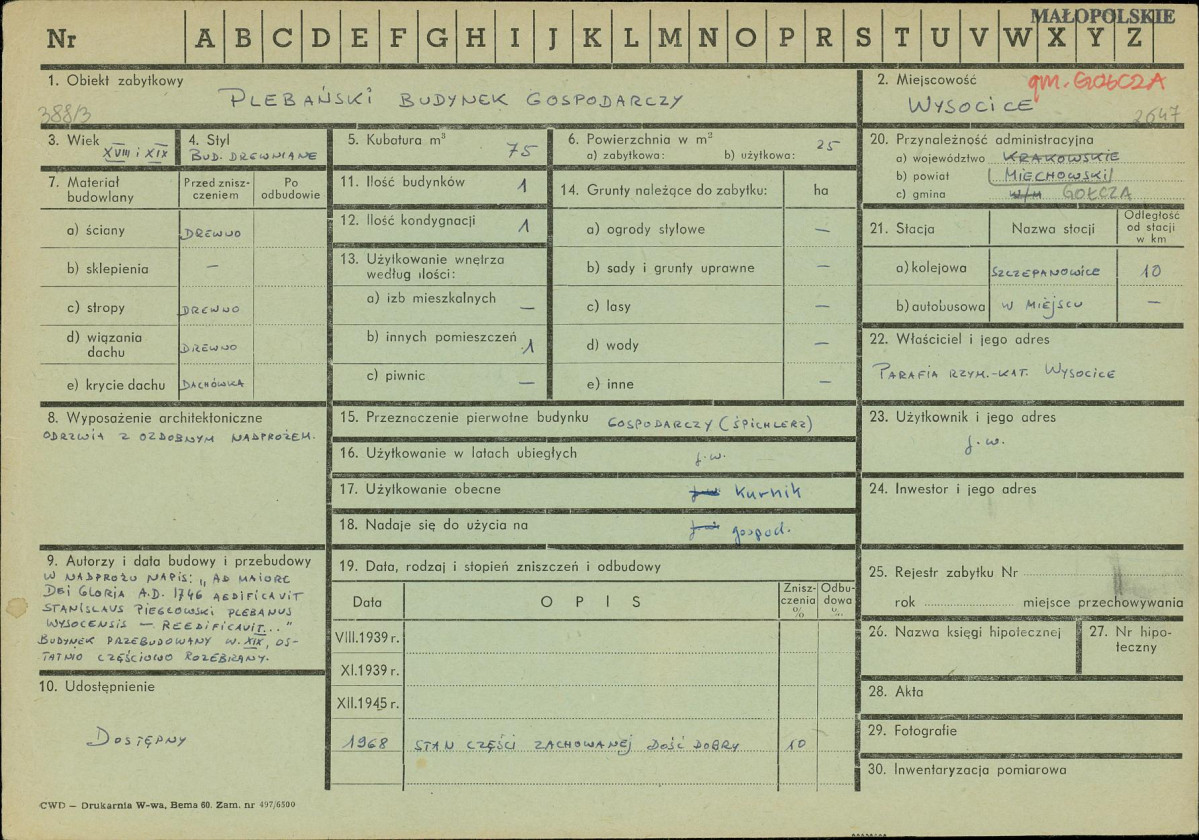 MAŁOPOLSKIE
Nr A B C D E F G H I J K L M N O P R S T U V W X Y Z
1. Obiekt zabytkowy
PLEBAŃSKI BUDYNEK GOSPODARCZY
388/3
2. Miejscowość gm. GOŁCZA
WYSOCICE
2647
3. Wiek
XVIII i XIX
4. Styl
BUD. DREWNIANE
5. Kubatura m³
75
6. Powierzchnia w m²
a) zabytkowa: b) użytkowa: 25
20. Przynależność administracyjna
a) województwo KRAKOWSKIE
b) powiat MIECHOWSKI
c) gmina w/m GOŁCZA
7. Materiał budowlany
Przed znisz-
czeniem
Po
odbudowie
a) ściany DREWNO
b) sklepienia —
c) stropy DREWNO
d) wiązania
dachu DREWNO
e) krycie dachu DACHÓWKA
11. Ilość budynków 1
12. Ilość kondygnacji 1
13. Użytkowanie wnętrza
według ilości:
a) izb mieszkalnych —
b) innych pomieszczeń 1
c) piwnic —
14. Grunty należące do zabytku: ha
a) ogrody stylowe —
b) sady i grunty uprawne —
c) lasy —
d) wody —
e) inne —
21. Stacja Nazwa stacji
Odległość
od stacji
w km
a) kolejowa SZCZEPANOWICE 10
b) autobusowa W MIEJSCU —
22. Właściciel i jego adres
PARAFIA RZYM.-KAT. WYSOCICE
8. Wyposażenie architektoniczne
ODRZWIA Z OZDOBNYM NADPROŻEM.
15. Przeznaczenie pierwotne budynku GOSPODARCZY (ŚPICHLERZ)
16. Użytkowanie w latach ubiegłych j.w.
17. Użytkowanie obecne j.w. Kurnik
18. Nadaje się do użycia na j.w. gospod.
23. Użytkownik i jego adres
j.w.
24. Inwestor i jego adres
9. Autorzy i data budowy i przebudowy
W NADPROŻU NAPIS: „AD MAIORE
DEI GLORIA A.D. 1746 AEDIFICAVIT
STANISLAUS PIEGŁOWSKI PLEBANUS
WYSOCENSIS — REEDIFICAVIT..."
BUDYNEK PRZEBUDOWANY W. XIX, OS-
TATNIO CZĘŚCIOWO ROZEBRANY.
10. Udostępnienie
DOSTĘPNY
19. Data, rodzaj i stopień zniszczeń i odbudowy
Data OPIS
Znisz-
czenia
%
Odbu-
dowa
%
VIII.1939 r.
XI.1939 r.
XII.1945 r.
1968 STAN CZĘŚCI ZACHOWANEJ DOŚĆ DOBRY 10
25. Rejestr zabytku Nr
rok miejsce przechowywania
26. Nazwa księgi hipotecznej
27. Nr hipo-
teczny
28. Akta
29. Fotografie
30. Inwentaryzacja pomiarowa
CWD — Drukarnia W-wa, Bema 60. Zam. nr 497/6500